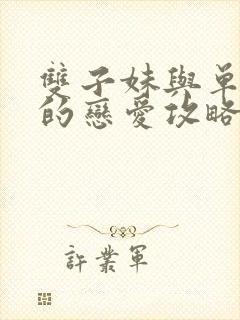 雙子妹與單
的戀愛攻略
許業軍